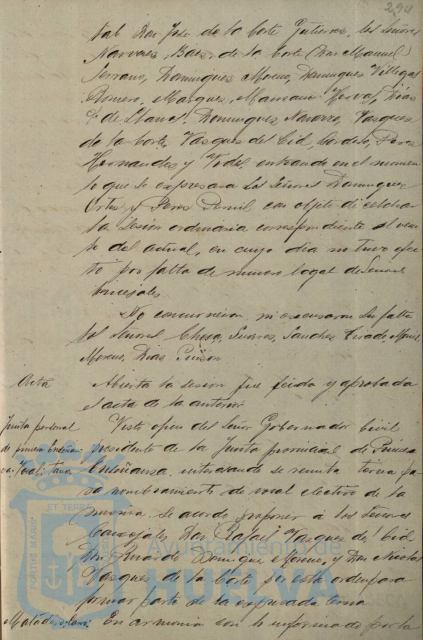 294
tal Don José de la Corte Gutierrez, los Señores
Narvaez, Baez, de la Corte (Don Manuel)
Serrano, Dominguez Moreno, Dominguez Villegas
Romero, Marquez, Mascaros Hervas, Dias
de Llano, Dominguez Navarro, Vazquez
de la Corte, Vazquez del Cid, Cordero, Perez
Hernandez y Vidal entrando en el momen
to que se expresara los Señores Dominguez
Ortiz y Perez con objeto de celebrar
la sesion ordinaria correspondiente al vein
te del actual, en cuyo dia no tuvo efec
to por falta de numero legal de Señores
Concejales.
No concurrieron, ni excusaron su falta
los Señores Checa, Suarez, Sanchez Tirado,
Moreno, Dias
Acta
Abierta la sesion fue leida y aprobada
el acta de la anterior.
Junta provincial
de primera Enseñan
za. Vocal
Visto oficio del Señor Gobernador Civil
presidente de la Junta provincial de Primera
Enseñanza, interesando se remita terna pa
ra nombramiento de vocal electivo de la
misma, se acordó proponer á los Señores
Concejales Don Rafael Vazquez del Cid
Don Dominguez Moreno, y Don Nicolas
Vazquez de la Corte por este orden para
formar parte de la expresada terna
Matadero
En armonia con lo informado por la
ET TERRAE
PORTUS MARIS
Ayuntamiento de
HUELVA